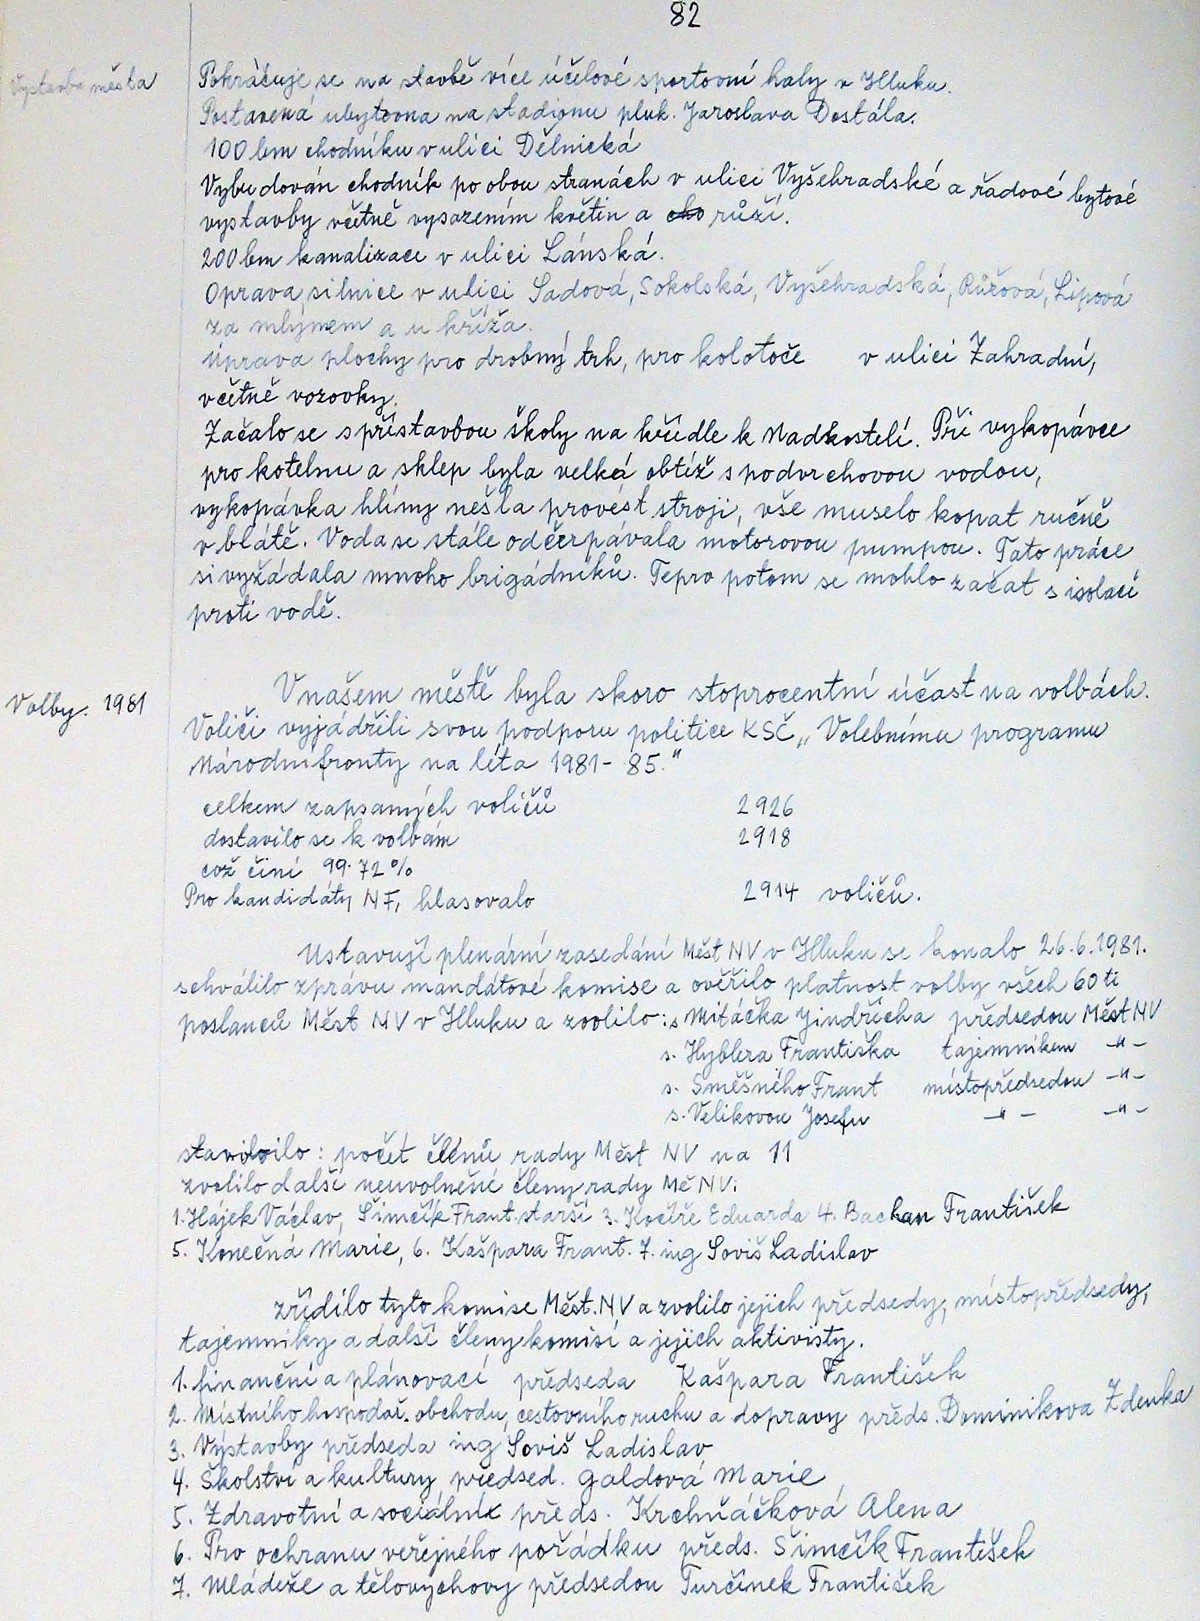 82
Výstavba města
Pokračuje se na stavbě více účelové sportovní haly v Hluku.
Postavená ubytovna na stadionu pluk. Jaroslava Dostála.
100 bm chodníku v ulici Dělnická
Vybudován chodník po obou stranách v ulici Vyšehradské a řadové bytové
výstavby včetně vysazením květin a růží.
200 bm kanalizace v ulici Lánská.
Oprava silnice v ulici Sadová, Sokolská, Vyšehradská, Růžová, Lipová
za mlýnem a u kříža.
Úprava plochy pro drobný trh, pro kolotoče v ulici Zahradní,
včetně vozovky.
Začalo se s přístavbou školy na křídle k Nadkostelí. Při vykopávce
pro kotelnu a sklep byla velká obtíž s podvrchovou vodou,
vykopávka hlíny nešla provést stroji, vše muselo kopat ručně
v blátě. Voda se stále odčerpávala motorovou pumpou. Tato práce
si vyžádala mnoho brigádníků. Tepro potom se mohlo začat s isolací
proti vodě.
Volby. 1981
V našem městě byla skoro stoprocentní účast na volbách.
Voliči vyjádřili svou podporu politice KSČ „Volebnímu programu
Národní fronty na léta 1981-85."
celkem zapsaných voličů 2926
dostavilo se k volbám 2918
což činí 99.72%
Pro kandidáty NF, hlasovalo 2914 voličů.
Ustavují plenární zasedání Měst NV v Hluku se konalo 26.6.1981.
schválilo zprávu mandátové komise a ověřilo platnost volby všech 60 ti
poslanců Měst NV v Hluku a zvolilo: s. Mitáčka Jindřicha předsedou Měst NV
s. Hyblera Františka tajemníkem -"-
s. Směšného Frant místopředsedou -"-
s. Velikovou Josefu -"- -"-
stanovilo: počet členů rady Měst NV na 11
zvolilo další neuvolněné členy rady Mě NV:
1. Hájek Václav, Šimčík Frant. starší 3. Kočíře Eduarda 4. Bachan František
5. Konečná Marie, 6. Kašpara Frant. 7. ing Soviš Ladislav
zřídilo tyto komise Měst. NV a zvolilo jejich předsedy, místopředsedy,
tajemníky a další členy komisí a jejich aktivisty.
1. finanční a plánovací předseda Kašpara František
2. Místního hospodář. obchodu, cestovního ruchu a dopravy předs. Dominikova Zdenka
3. Výstavby předseda ing Soviš Ladislav
4. Školství a kultury předsed. Galdová Marie
5. Zdravotní a sociální předs. Krchňáčková Alena
6. Pro ochranu veřejného pořádku předs. Šimčík František
7. Mládeže a tělovýchovy předsedou Turčínek František